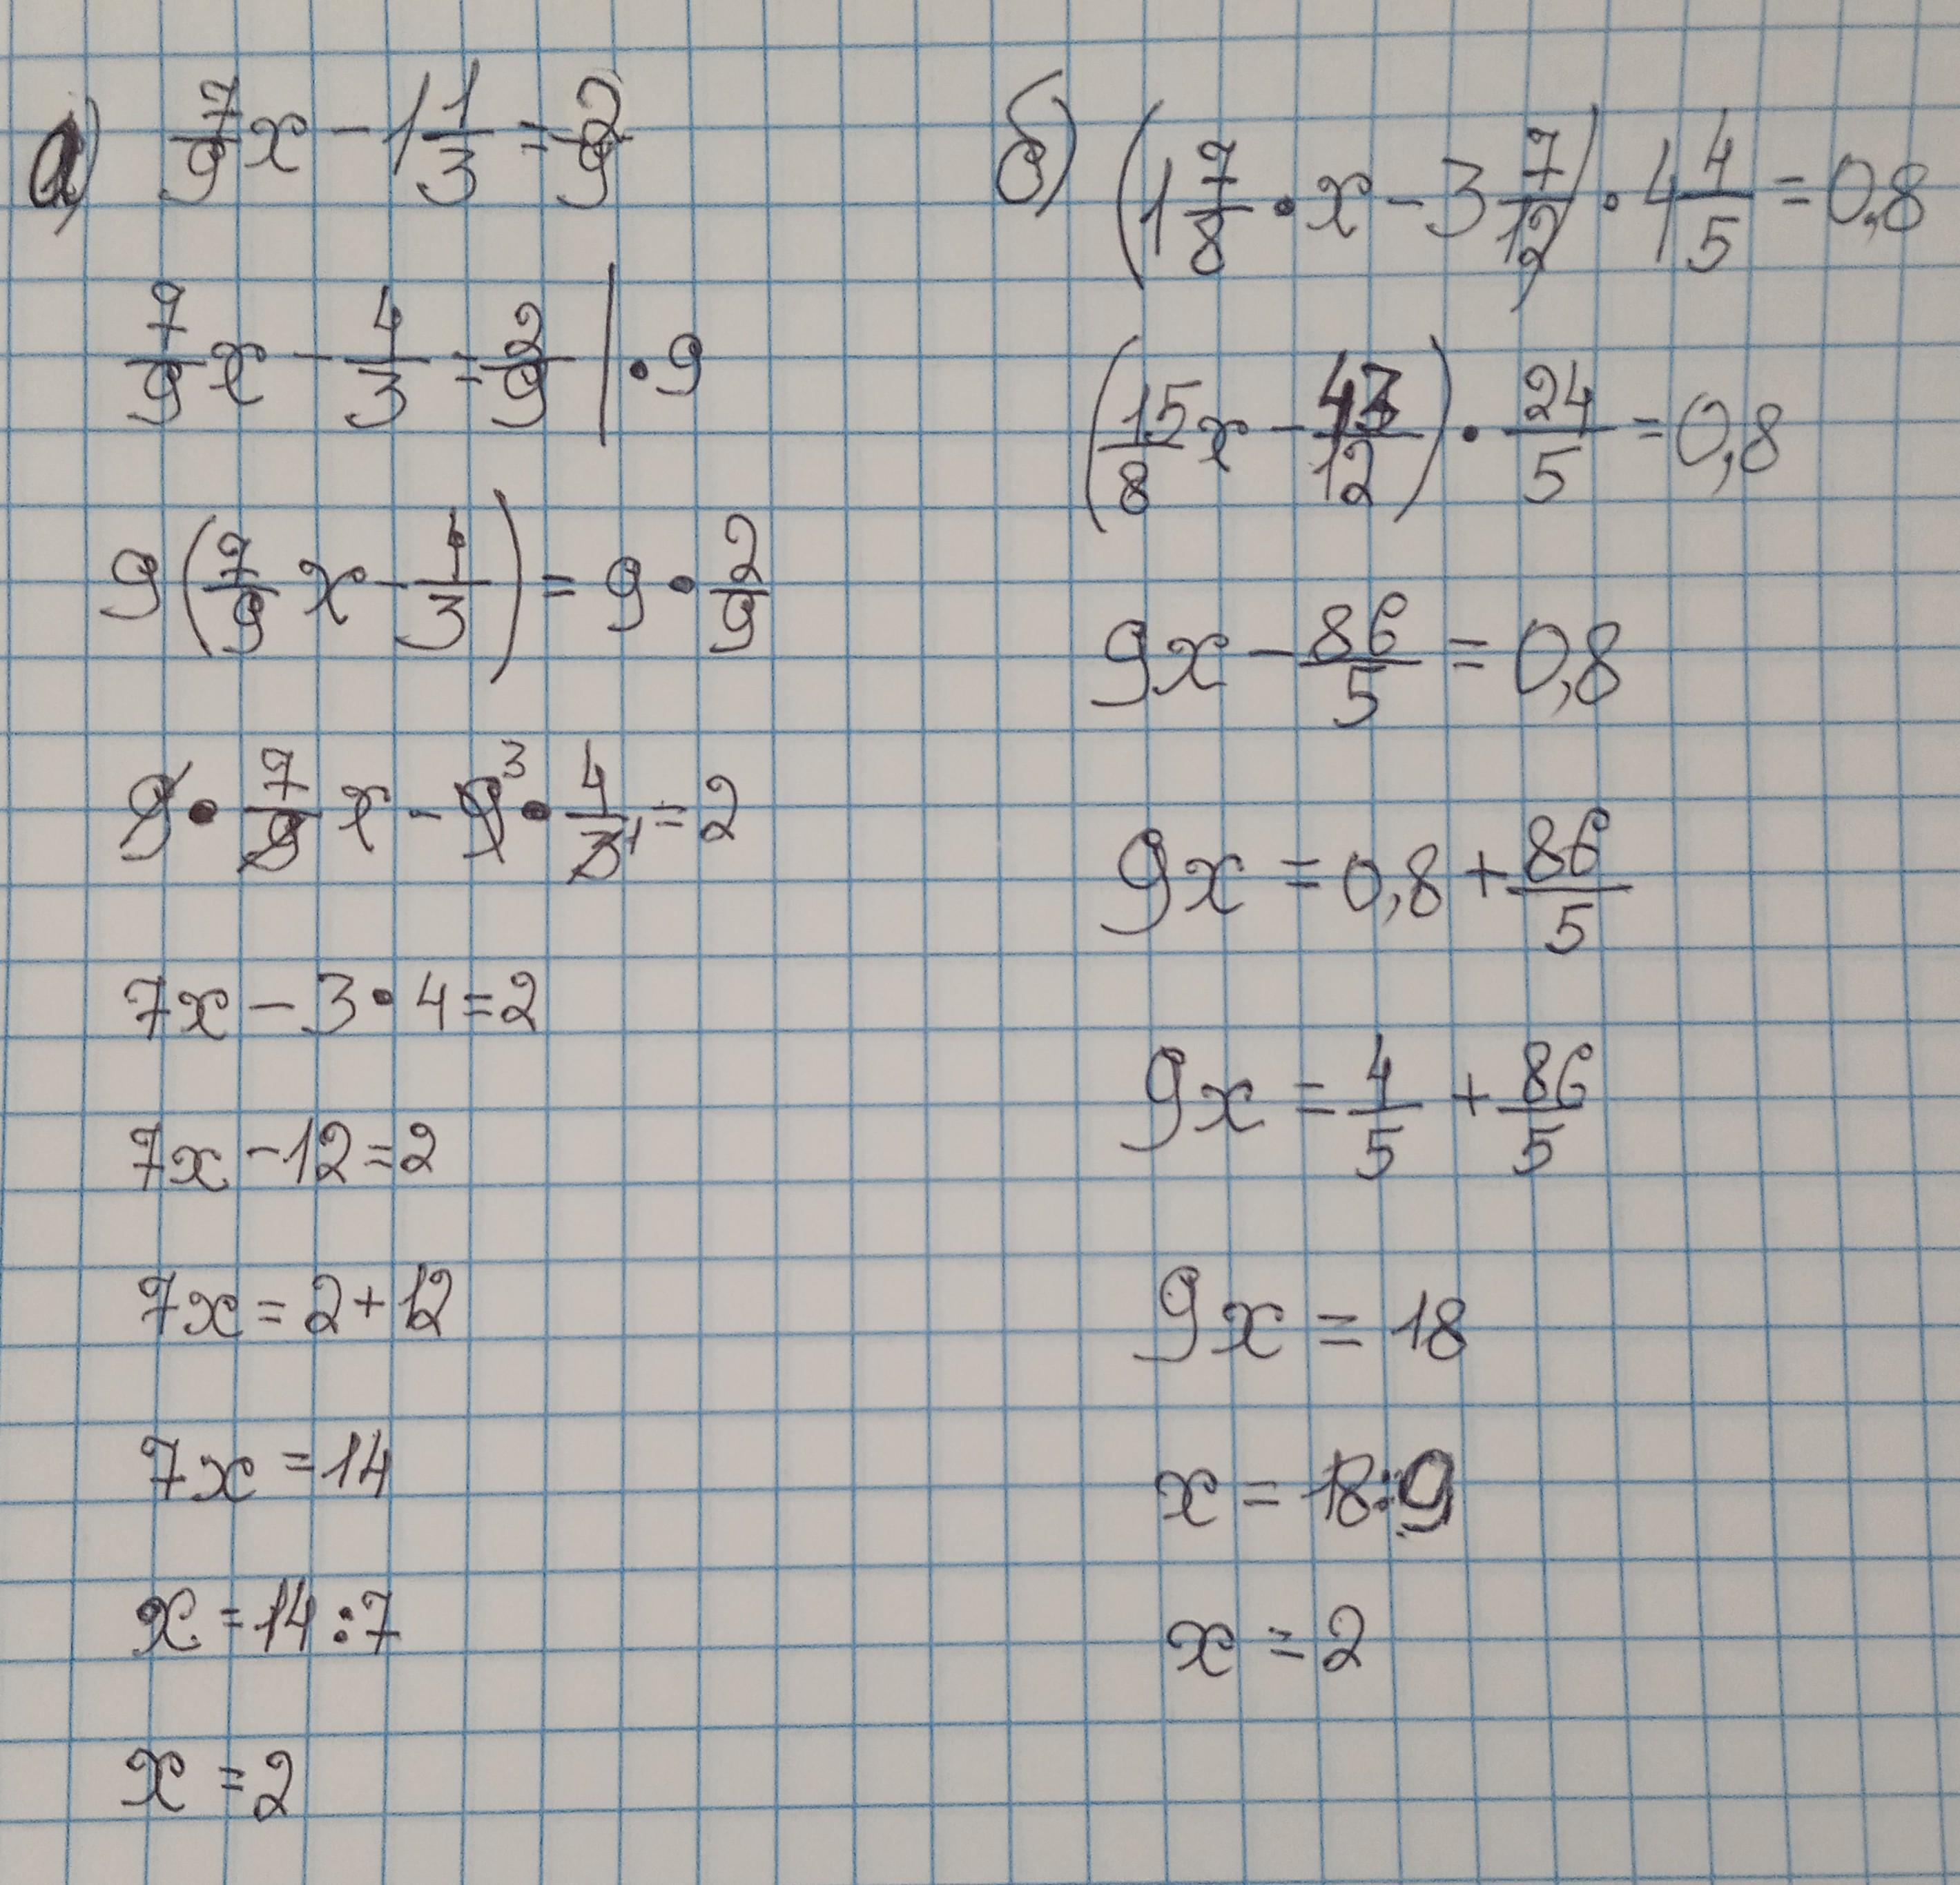 а) 7/9 x - 1 1/3 = 2/9
7/9 x - 4/3 = 2/9 | · 9
9(7/9 x - 4/3) = 9 · 2/9
9 · 7/9 x - 9³ · 4/3₁ = 2
7x - 3 · 4 = 2
7x - 12 = 2
7x = 2 + 12
7x = 14
x = 14 : 7
x = 2
б) (1 7/8 · x - 3 7/12) · 4 4/5 = 0,8
(15/8 x - 43/12) · 24/5 = 0,8
9x - 86/5 = 0,8
9x = 0,8 + 86/5
9x = 4/5 + 86/5
9x = 18
x = 18 : 9
x = 2